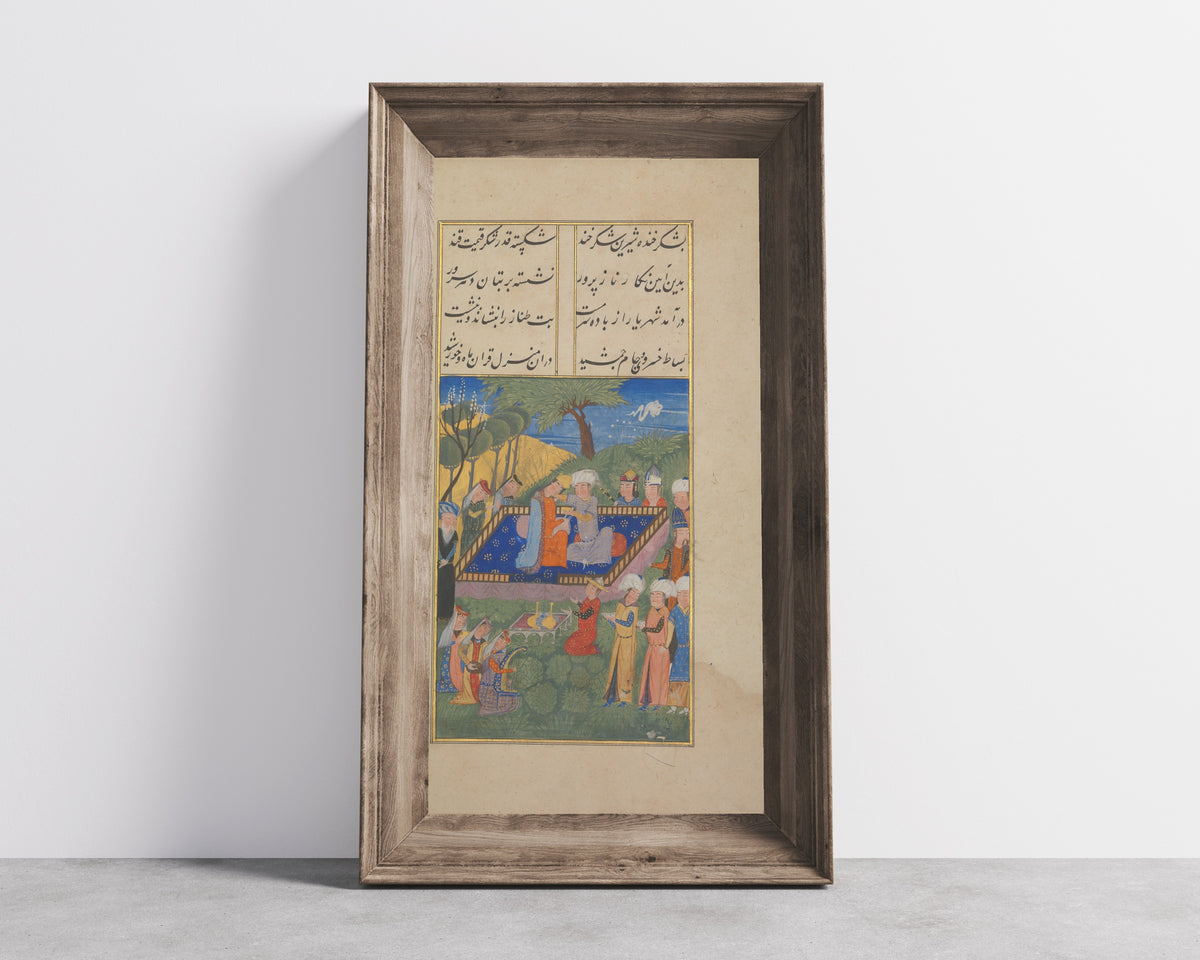 بشکر خنده شیرین شکر خند شکسته قدر شکر قیمت قند
بدین آیین نگار ناز پرور نشسته بر بتان دهر سرور
درآمد شهریار از باده مست بت طناز را بنشاند و بنشست
بساط خسرو و جام جمشید دران منزل قران ماه و خورشید